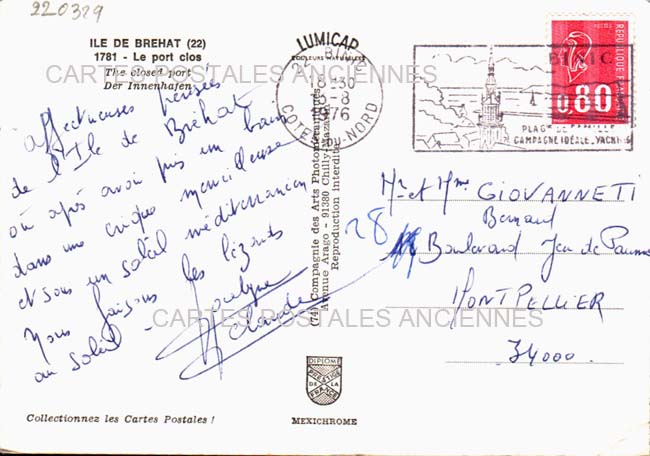 220329
ILE DE BREHAT (22)
1781 - Le port clos
The closed port
Der Innenhafen
Affectueuses pensées
de l'Ile de Bréhat
où après avoir pris un bain
dans une crique merveilleuse
et sous un soleil méditerranéen
Nous faisons les lézards
au soleil -
Jocelyne
Claude
LUMICAP
COULEURS NATURELLES
(74) Compagnie des Arts Photomécaniques
Avenue Arago - 91380 Chilly-Mazarin
Reproduction Interdite
22 BINIC
18-30
3-8
1976
COTES-DU-NORD
BINIC
PLAGE DE FAMILLE
CAMPAGNE IDÉALE YACHTING
0,80
REPUBLIQUE FRANCAISE
Mr et Mme GIOVANNETI
Bernard
28 Boulevard Jeu de Paume
MONTPELLIER
34000.
DIPLOME
PRESTIGE
DE LA
FRANCE
Collectionnez les Cartes Postales !
MEXICHROME
CARTES POSTALES ANCIENNES
CARTES POSTALES ANCIENNES